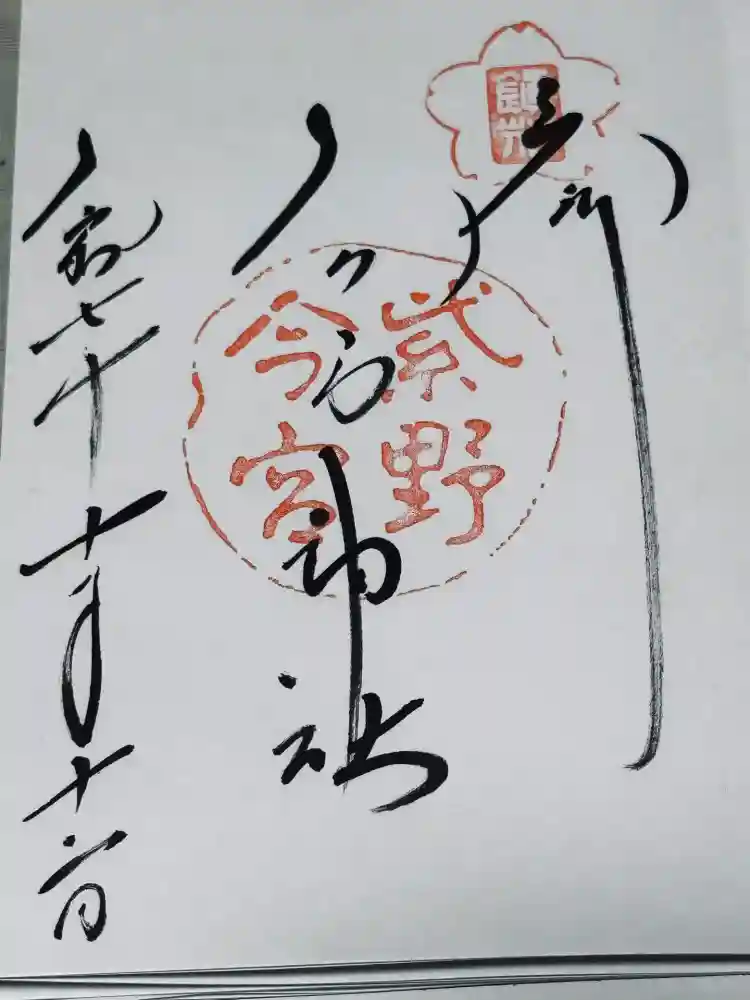 奉拝
紫野
今宮
今宮神社
令和七年十月